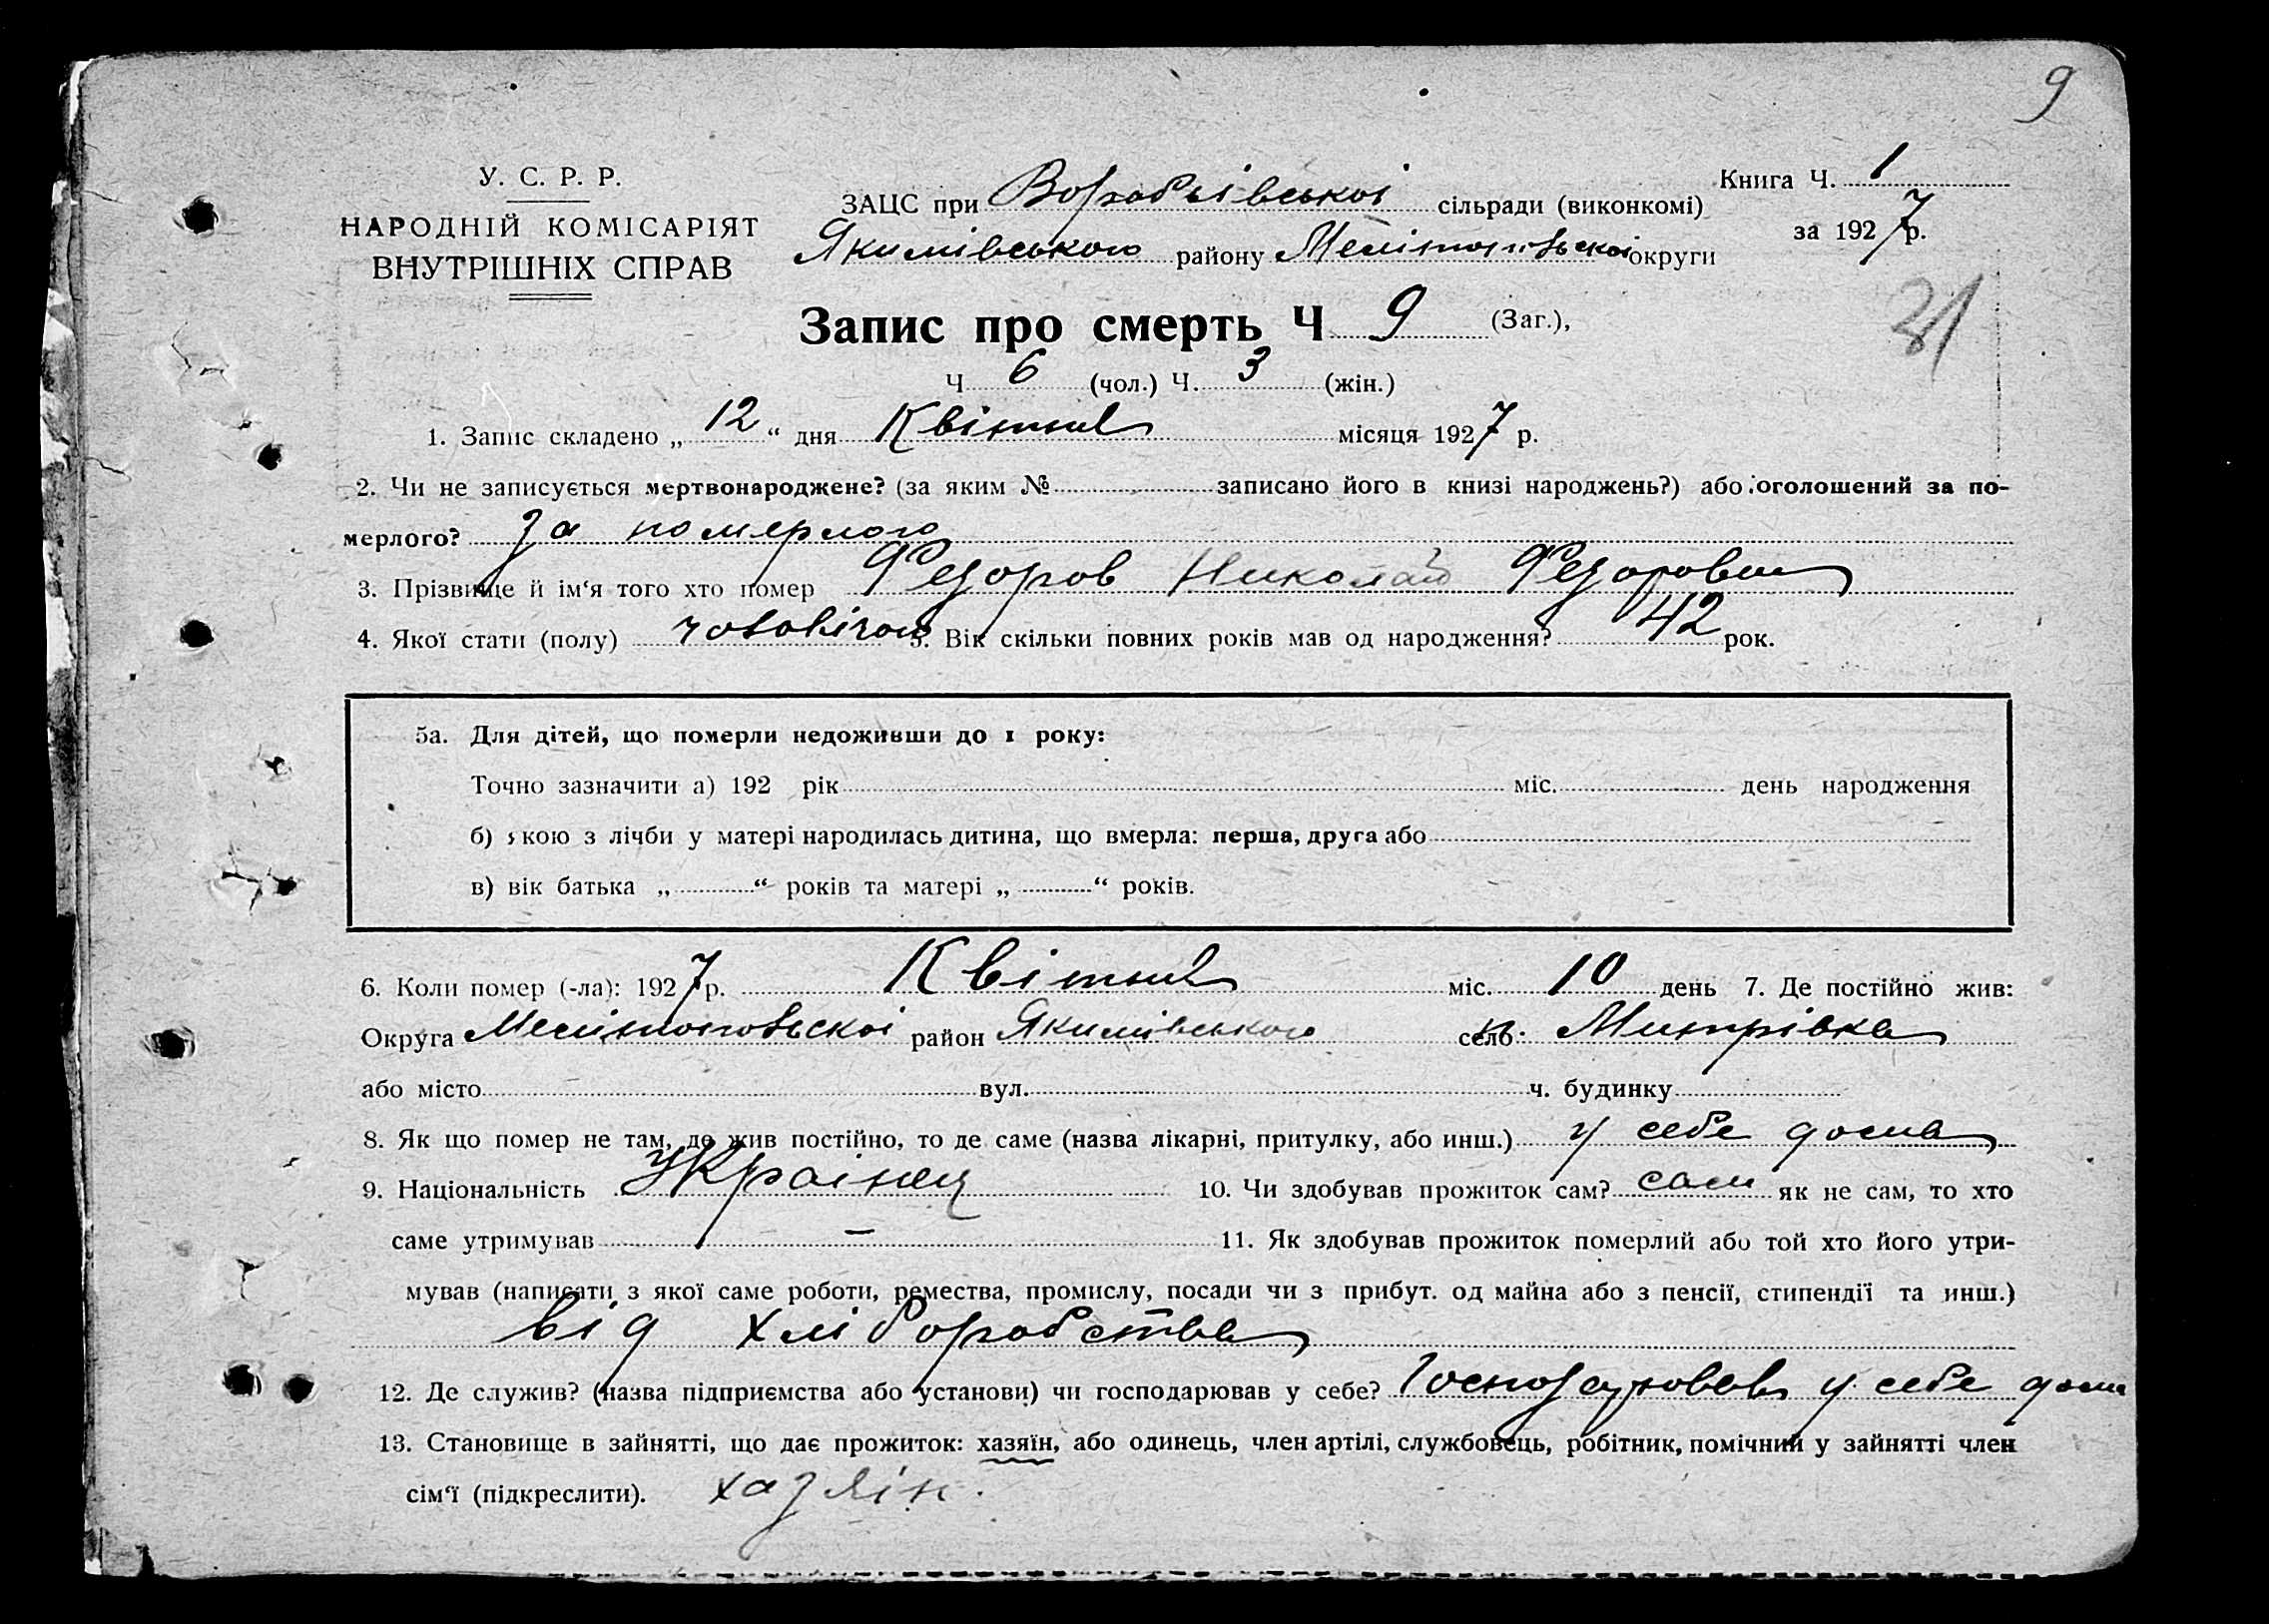 9
У. С. Р. Р.
НАРОДНІЙ КОМІСАРІЯТ
ВНУТРІШНІХ СПРАВ
ЗАЦС при Воробьівської сільради (виконкомі)
Якимівського району Мелітопольскої округи
Книга Ч. 1
за 1927 р.
31
Запис про смерть Ч 9 (Заг.),
Ч 6 (чол.) Ч. 3 (жін.)
1. Запис складено „ 12 “ дня Квітня місяця 1927 р.
2. Чи не записується мертвонароджене? (за яким № записано його в книзі народжень?) або оголошений за по-
мерлого? За померлого
3. Прізвище й ім‘я того хто помер Федоров Николай Федорович
4. Якої стати (полу) чоловічої 5. Вік скільки повних років мав од народження? 42 рок.
5а. Для дітей, що померли недоживши до 1 року:
Точно зазначити а) 192 рік міс. день народження
б) якою з лічби у матері народилась дитина, що вмерла: перша, друга або
в) вік батька „ “ років та матері „ “ років.
6. Коли помер (-ла): 1927 р. Квітня міс. 10 день 7. Де постійно жив:
Округа Мелітопольскої район Якимівського село Митрівка
або місто вул. ч. будинку
8. Як що помер не там, де жив постійно, то де саме (назва лікарні, притулку, або инш.) у себе дома
9. Національність Українец 10. Чи здобував прожиток сам? сам як не сам, то хто
саме утримував — 11. Як здобував прожиток померлий або той хто його утри-
мував (написати з якої саме роботи, ремества, промислу, посади чи з прибут. од майна або з пенсії, стипендії та инш.)
від хліборобства
12. Де служив? (назва підприємства або установи) чи господарював у себе? Господарював у себе дома
13. Становище в зайнятті, що дає прожиток: хазяїн, або одинець, член артілі, службовець, робітник, помічний у зайнятті член
сім‘ї (підкреслити). хазяін.